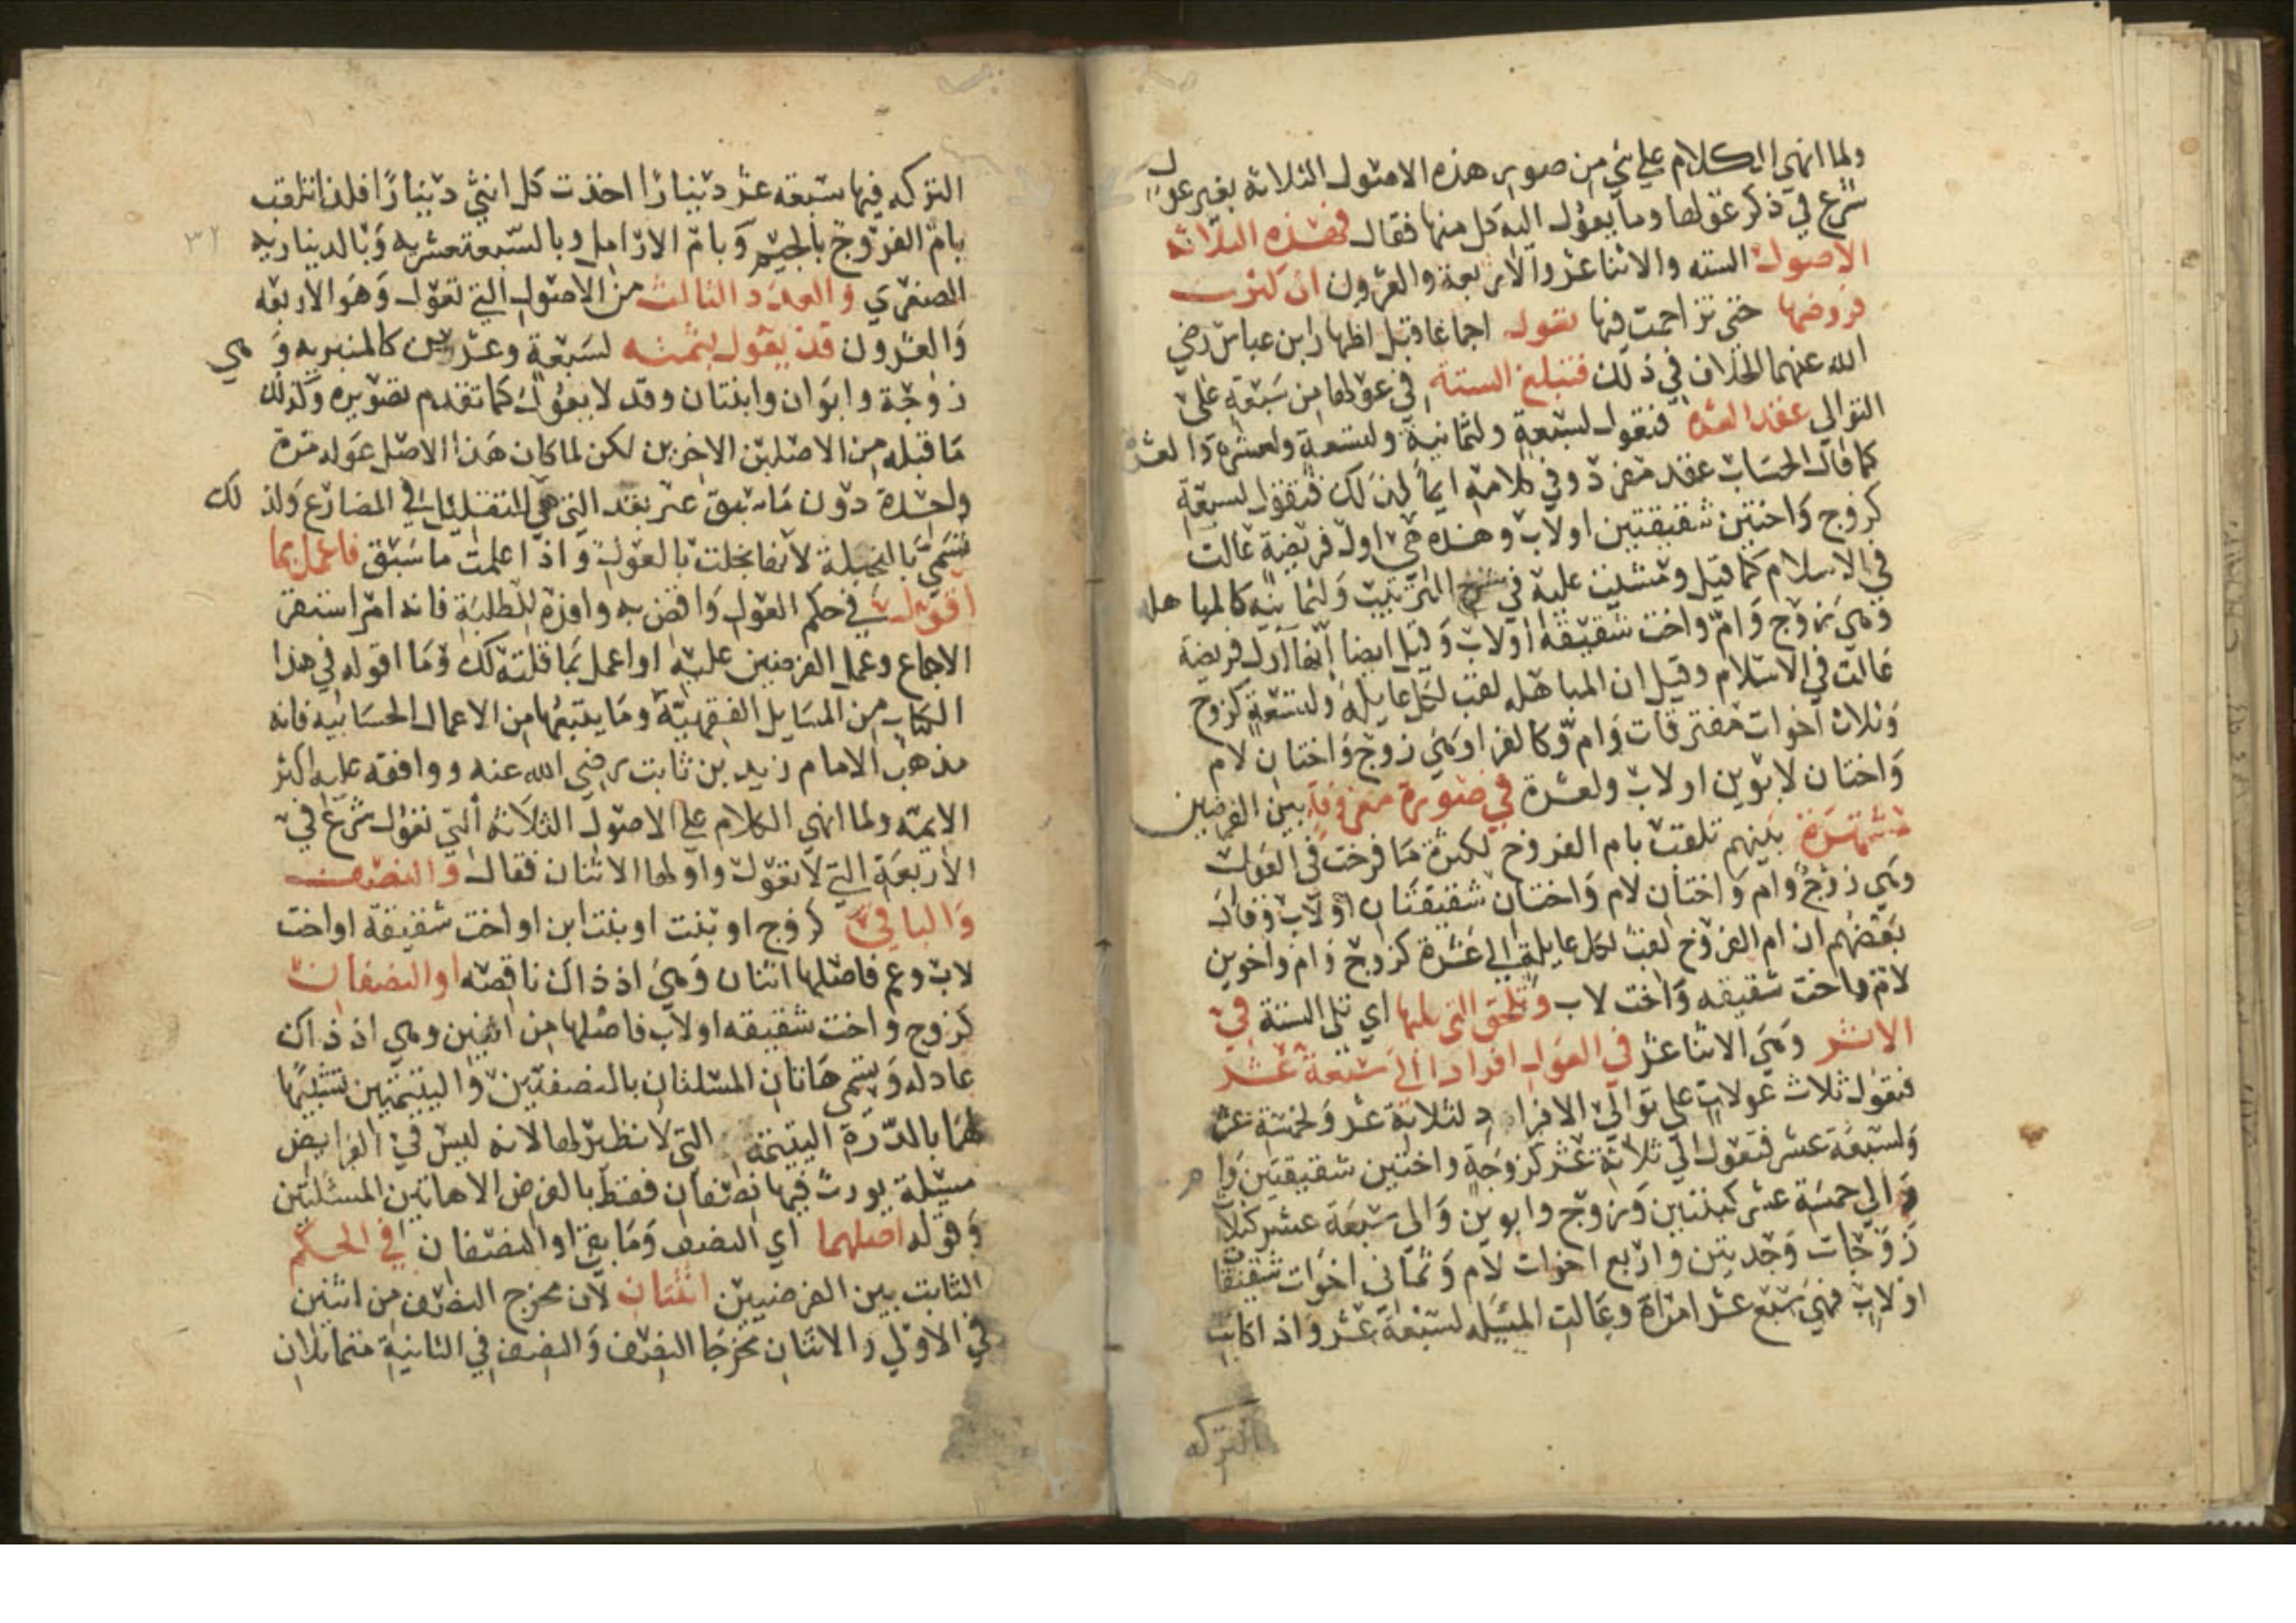 ولما انهى الكلام على شي من صور هذه الاصول الثلاثة بغير عول
شرع في ذكر عولها وما يعول اليه كل منها فقال فهذه الثلاثه
الاصول الستة والاثنا عشر والاربعة والعشرون ان كثرت
فروضها حتى تزاحمت فيها تعول اجماعا قبل اظهار ابن عباس رضي
الله عنهما الخلاف في ذلك فتبلغ الستة في عولها من سبعة على
التوالي عقد العشرة فتعول لسبعة ولثمانية ولتسعة ولعشرة والعشرة
كما قال الحساب عقد مفرد وفي كلامه ايماً لذلك فتعول لسبعة
كزوج واختين شقيقتين او لاب وهذه هي اول فريضة عالت
في الاسلام كما قيل ومشيت عليه في شرح الترتيب ولثمانية كالمباهله
وهي زوج وام واخت شقيقة او لاب وقيل ايضا انها اول فريضة
عالت في الاسلام وقيل ان المباهله لقب لكل عايلة ولتسعة كزوج
وثلاث اخوات مفترقات وام وكالغرا وهي زوج واختان لام
واختان لابوين او لاب ولعشرة في صورة معروفة بين الفرضيين
مشتهرة بينهم تلقب بام الفروخ لكثرة ما فرخت في العول
وهي زوج وام واختان لام واختان شقيقتان او لاب وقال
بعضهم ان ام الفروخ لقب لكل عايلة الي عشرة كزوج وام واخوين
لام واخت شقيقه واخت لاب وتلحق التي تليها اي تلي الستة في
الاثر وهي الاثنا عشر في العول افرادا الي سبعة عشر
فتعول ثلاث عولات على توالي الافراد لثلاثة عشر ولخمسة عشر
ولسبعة عشر فتعول الي ثلاثة عشر كزوجة واختين شقيقتين وام
والي خمسة عشر كبنتين وزوج وابوين والي سبعة عشر كثلاث
زوجات وجدتين واربع اخوات لام وثماني اخوات شقيقات
او لاب فهي سبع عشر امراة وعالت المسيله لسبعة عشر واذا كانت
التركه
التركه فيها سبعه عشر دينارا اخذت كل انثى دينارا فلذا تلقب
بام الفروج بالجيم وبام الارامل وبالسبعة عشريه وبالديناريه
الصغرى والعدد الثالث من الاصول التي تعول وهو الاربعه
والعشرون قد يعول بثمنه لسبعة وعشرين كالمنبريه وهي
زوجة وابوان وابنتان وقد لا يعول كما تقدم تصويره وكذلك
ما قبله من الاصلين الاخرين لكن لما كان هذا الاصل عوله مرة
واحدة دون ما سبق عبر بقد التي هي للتقليل في المضارع ولذلك
تسمي بالبخيلة لانها بخلت بالعول واذا علمت ما سبق فاعمل بما
اقول في حكم العول واقض به وافده للطلبة فانه امر استقر
الاجماع وعمل الفرضيين عليه او اعمل بما قلته لك وما اقوله في هذا
الكتاب من المسايل الفقهيه وما يتبعها من الاعمال الحسابيه فانه
مذهب الامام زيد بن ثابت رضي الله عنه ووافقه عليه اكثر
الايمه ولما انهى الكلام على الاصول الثلاثة التي تعول شرع في
الاربعة التي لا تعول واولها الاثنان فقال والنصف
والباقي كزوج او بنت او بنت ابن او اخت شقيقة او اخت
لاب وعم فاصلها اثنان وهي اذ ذاك ناقصه او النصفان
كزوج واخت شقيقه او لاب فاصلها من اثنين وهي اذ ذاك
عادله ويسمى هاتان المسئلتان بالنصفيتين واليتيمتين تشبيها
لهما بالدرة اليتيمة التي لا نظير لها لانه ليس في الفرايض
مسيلة يورث فيها نصفان فقط بالفرض الا هاتين المسئلتين
وقوله اصلهما اي النصف وما بقي او النصفان في الحكم
الثابت بين الفرضيين اثنان لان مخرج النصف من اثنين
في الاولي والاثنان مخرجا النصف والنصف في الثانية متماثلان